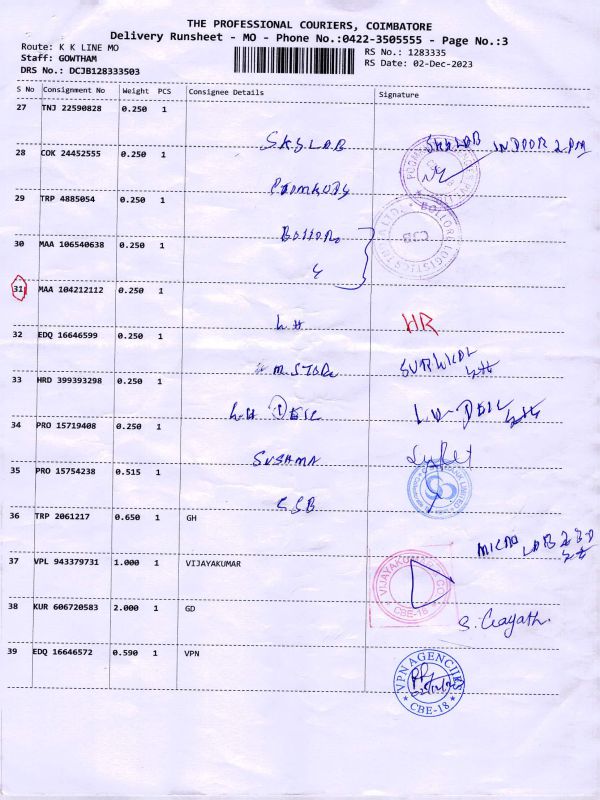 THE PROFESSIONAL COURIERS, COIMBATORE
Delivery Runsheet - MO - Phone No.:0422-3505555 - Page No.:3
Route: K K LINE MO
RS No.: 1283335
Staff: GOWTHAM
RS Date: 02-Dec-2023
DRS No.: DCJB128333503
S No Consignment No Weight PCS Consignee Details Signature
27 TNJ 22590828 0.250 1
SKYLAB SKYLAB INDOOR 2 PM
28 COK 24452555 0.250 1
29 TRP 4885054 0.250 1
30 MAA 106540638 0.250 1
31 MAA 104212112 0.250 1
LH HR
32 EDQ 16646599 0.250 1
M.STORE
33 HRD 399393298 0.250 1
34 PRO 15719408 0.250 1
SUSHMA
35 PRO 15754238 0.515 1
CSB
36 TRP 2061217 0.650 1 GH
MICRO LAB
37 VPL 943379731 1.000 1 VIJAYAKUMAR
VIJAYAKUMAR CO
CBE-18
38 KUR 606720583 2.000 1 GD
S. Gayath
39 EDQ 16646572 0.590 1 VPN
VPN AGENCIES
CBE-18